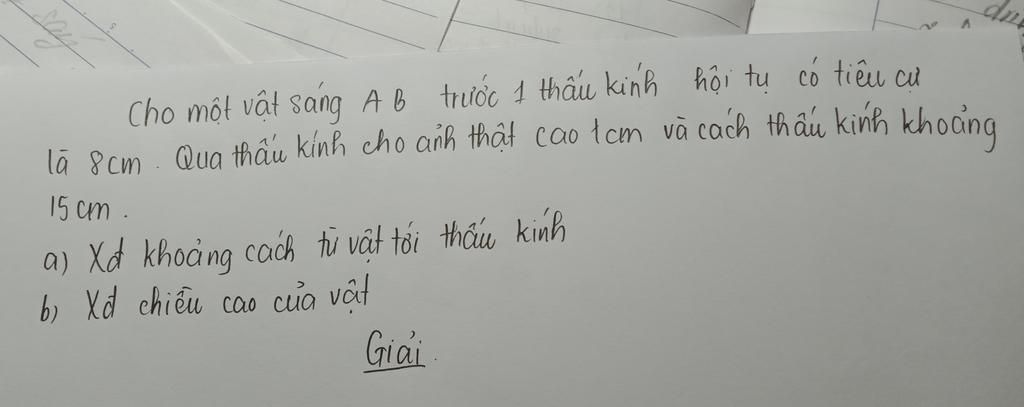 Cho một vật sáng AB trước 1 thấu kính hội tụ có tiêu cự
là 8cm. Qua thấu kính cho ảnh thật cao 1cm và cách thấu kính khoảng
15 cm.
a) Xđ khoảng cách từ vật tới thấu kính
b) Xđ chiều cao của vật
Giải.